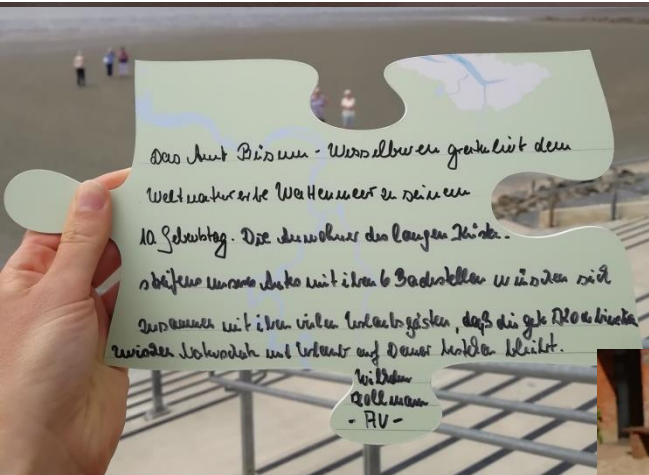 Das Amt Büsum-Wesselburen gratuliert dem
Weltnaturerbe Wattenmeer zu seinem
10. Geburtstag. Die Anwohner des langen Küsten-
streifens unseres Amtes mit ihren 6 Badestellen wünschen sich
zusammen mit ihren vielen Urlaubsgästen, daß die gute
zwischen Naturschutz und Urlaub auf Dauer bestehen bleibt.
- AV -